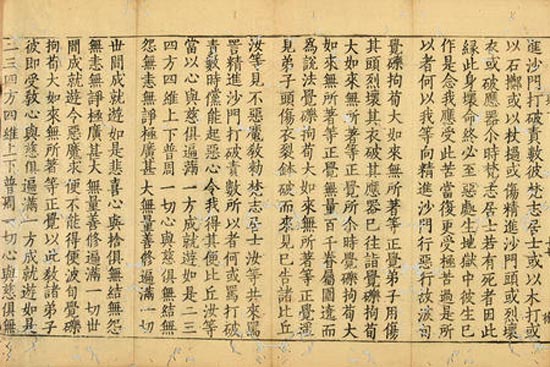 進沙門打破責數彼梵志居士或以木打或
以石擲或以杖撾或傷精進沙門頭或裂壞
衣或破應器尒時梵志居士若有死者因此
緣此身壞命終必至惡處生地獄中彼生已
作是念我應受此苦當復更受極苦過是所
以者何以我等向精進沙門行惡行故波旬
覺礫拘荀大如來無所著等正覺弟子用傷
其頭裂壞其衣破其應器已往詣覺礫拘荀
大如來無所著等正覺所尒時覺礫拘荀
大如來無所著等正覺無量百千眷屬圍遶而
為說法覺礫拘荀大如來無所著等正覺遙
見弟子頭傷衣裂鉢破而來見已告諸比丘
汝等見不惡魔敎勑梵志居士汝等共來罵
詈精進沙門打破責數所以者何或罵打破
責數時儻能起惡心令我得其便比丘汝等
當以心與慈俱遍滿一方成就遊如是二三
四方四維上下普周一切心與慈俱無結無
怨無恚無諍極廣甚大無量善修遍滿一切
世間成就遊如是悲喜心與捨俱無結無怨
無恚無諍極廣甚大無量善修遍滿一切世
間成就遊令惡魔求便不能得便波旬覺礫
拘荀大如來無所著等正覺以此敎諸弟子
彼即受敎心與慈俱遍滿一方成就遊如是
二三四方四維上下普周一切心與慈俱無